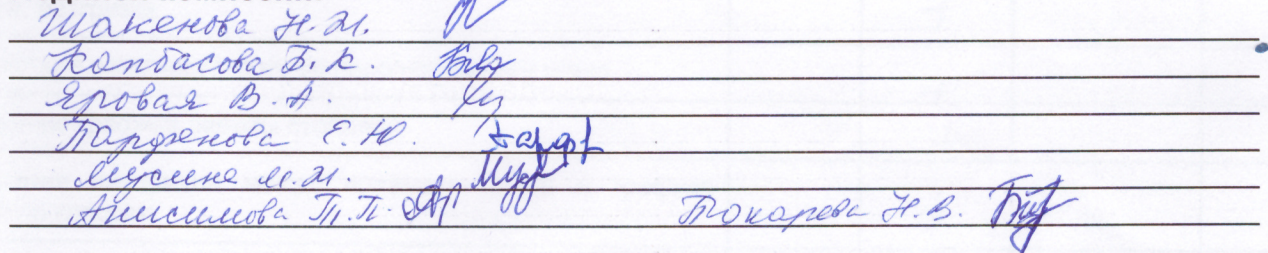 Шакенова Н.М.
Копбасова Б.К.
Яровая В.А.
Парфенова Е.Ю.
Мусина М.М.
Анисимова Т.П. Токарева Н.В.